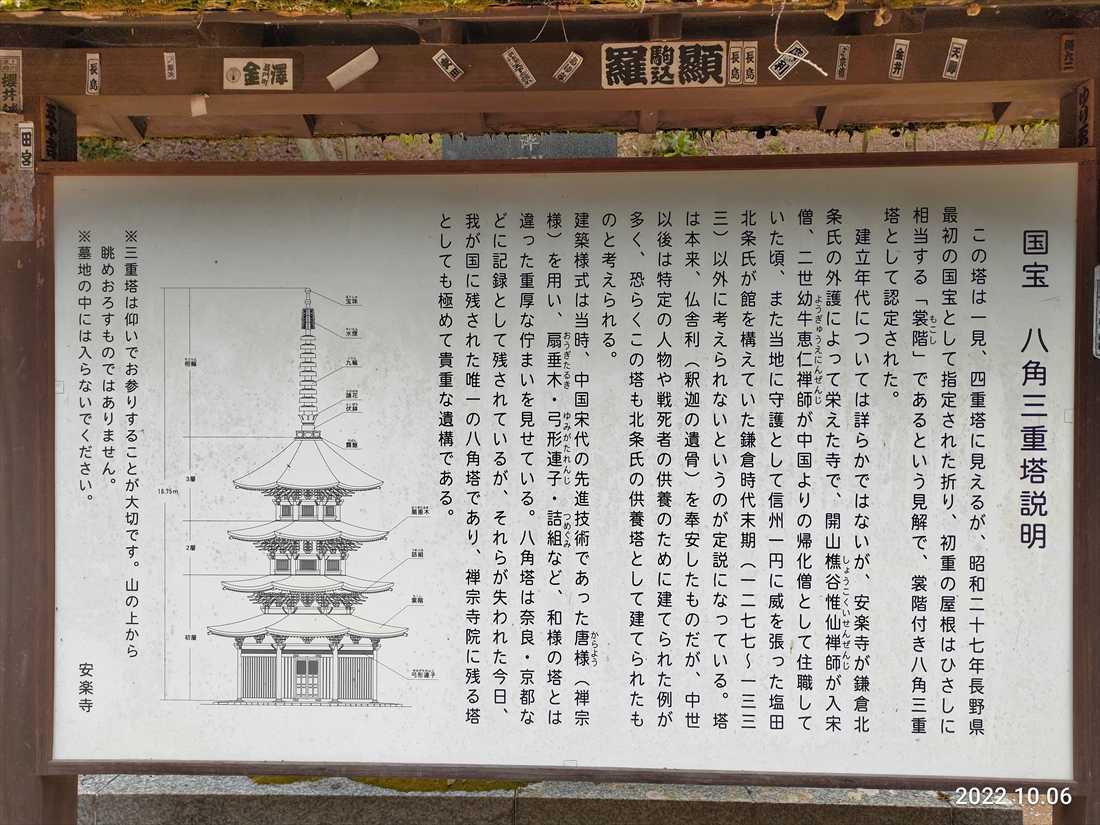 国宝　八角三重塔説明
この塔は一見、四重塔に見えるが、昭和二十七年長野県
最初の国宝として指定された折り、初重の屋根はひさしに
相当する「裳階」であるという見解で、裳階付き八角三重
もこし
塔として認定された。
建立年代については詳らかではないが、安楽寺が鎌倉北
条氏の外護によって栄えた寺で、開山樵谷惟仙禅師が入宋
しょうこくいせんぜんじ
僧、二世幼牛恵仁禅師が中国よりの帰化僧として住職して
ようぎゅうえにんぜんじ
いた頃、また当地に守護として信州一円に威を張った塩田
北条氏が館を構えていた鎌倉時代末期（一二七七～一三三
三）以外に考えられないというのが定説になっている。塔
は本来、仏舎利（釈迦の遺骨）を奉安したものだが、中世
以後は特定の人物や戦死者の供養のために建てられた例が
多く、恐らくこの塔も北条氏の供養塔として建てられたも
のと考えられる。
建築様式は当時、中国宋代の先進技術であった唐様（禅宗
からよう
様）を用い、扇垂木・弓形連子・詰組など、和様の塔とは
おうぎたるき
ゆみがたれんじ
つめぐみ
違った重厚な佇まいを見せている。八角塔は奈良・京都な
どに記録として残されているが、それらが失われた今日、
我が国に残された唯一の八角塔であり、禅宗寺院に残る塔
としても極めて貴重な遺構である。
宝珠
水煙
九輪
蓮花
伏鉢
露盤
相輪
3層
18.75m
2層
初層
扇垂木
詰組
裳階
弓形連子
※三重塔は仰いでお参りすることが大切です。山の上から
眺めおろすものではありません。
※墓地の中には入らないでください。
安楽寺
長島
金澤
羅
駒込
顯
長島
長島
金井
天満
田宮
櫻井
2022.10.06